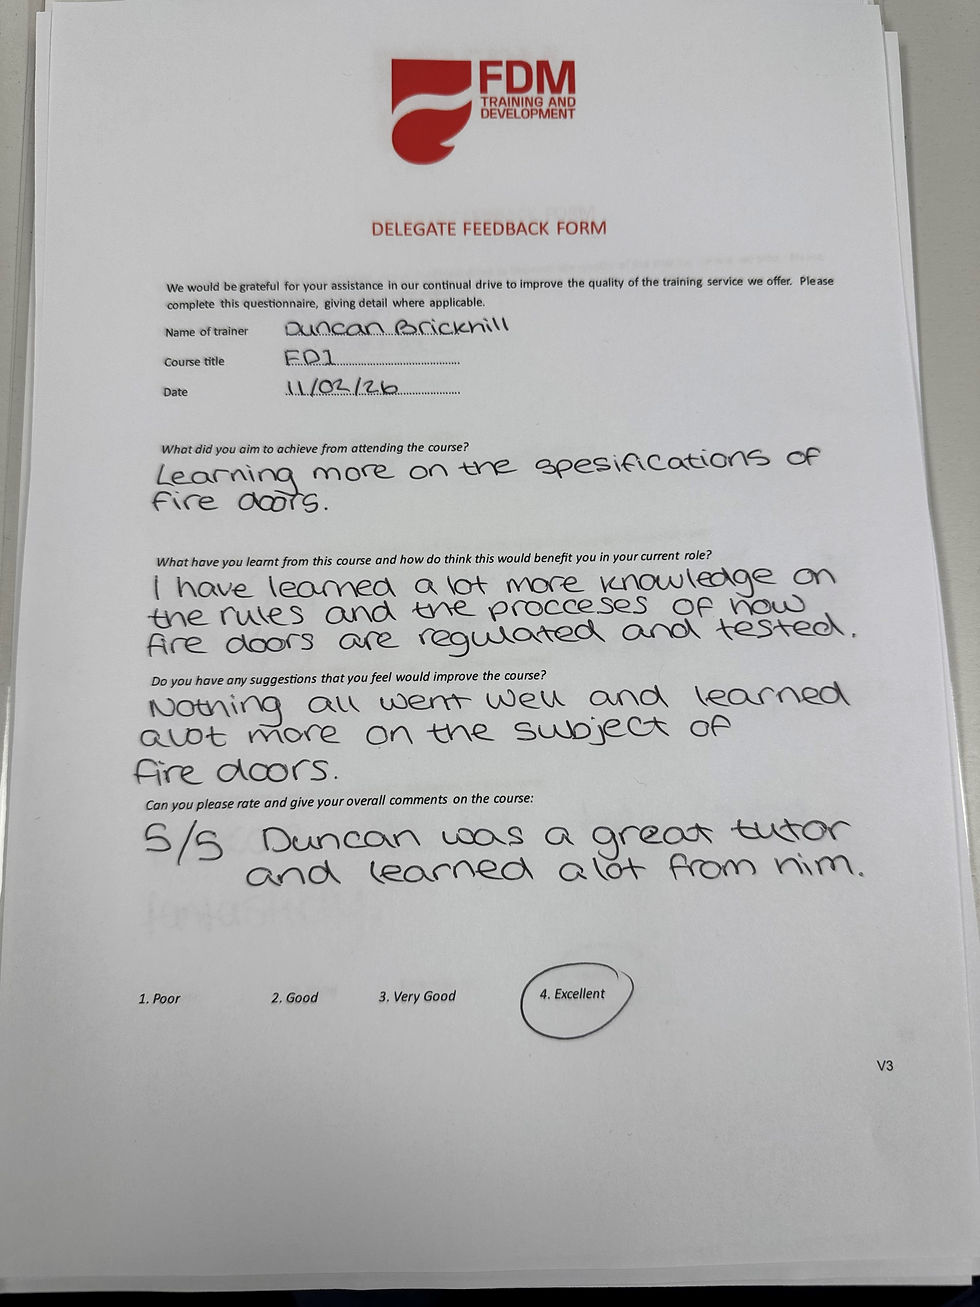 FDM
TRAINING AND
DEVELOPMENT
DELEGATE FEEDBACK FORM
We would be grateful for your assistance in our continual drive to improve the quality of the training service we offer. Please
complete this questionnaire, giving detail where applicable.
Name of trainer Duncan Bricknill
Course title FD1
Date 11/02/26
What did you aim to achieve from attending the course?
Learning more on the spesifications of
fire doors.
What have you learnt from this course and how do think this would benefit you in your current role?
I have learned a lot more knowledge on
the rules and the procceses of how
fire doors are regulated and tested.
Do you have any suggestions that you feel would improve the course?
Nothing all went well and learned
alot more on the subject of
fire doors.
Can you please rate and give your overall comments on the course:
5/5 Duncan was a great tutor
and learned alot from him.
1. Poor 2. Good 3. Very Good 4. Excellent
V3